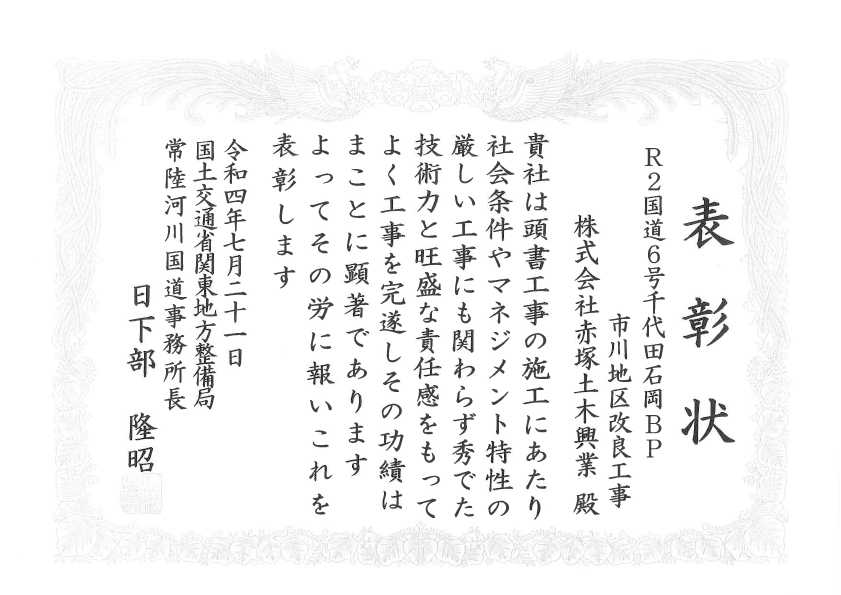 表彰状
R2国道6号千代田石岡BP
市川地区改良工事
株式会社赤塚土木興業 殿
貴社は頭書工事の施工にあたり
社会条件やマネジメント特性の
厳しい工事にも関わらず秀でた
技術力と旺盛な責任感をもって
よく工事を完遂しその功績は
まことに顕著であります
よってその労に報いこれを
表彰します
令和四年七月二十一日
国土交通省関東地方整備局
常陸河川国道事務所長
日下部 隆昭